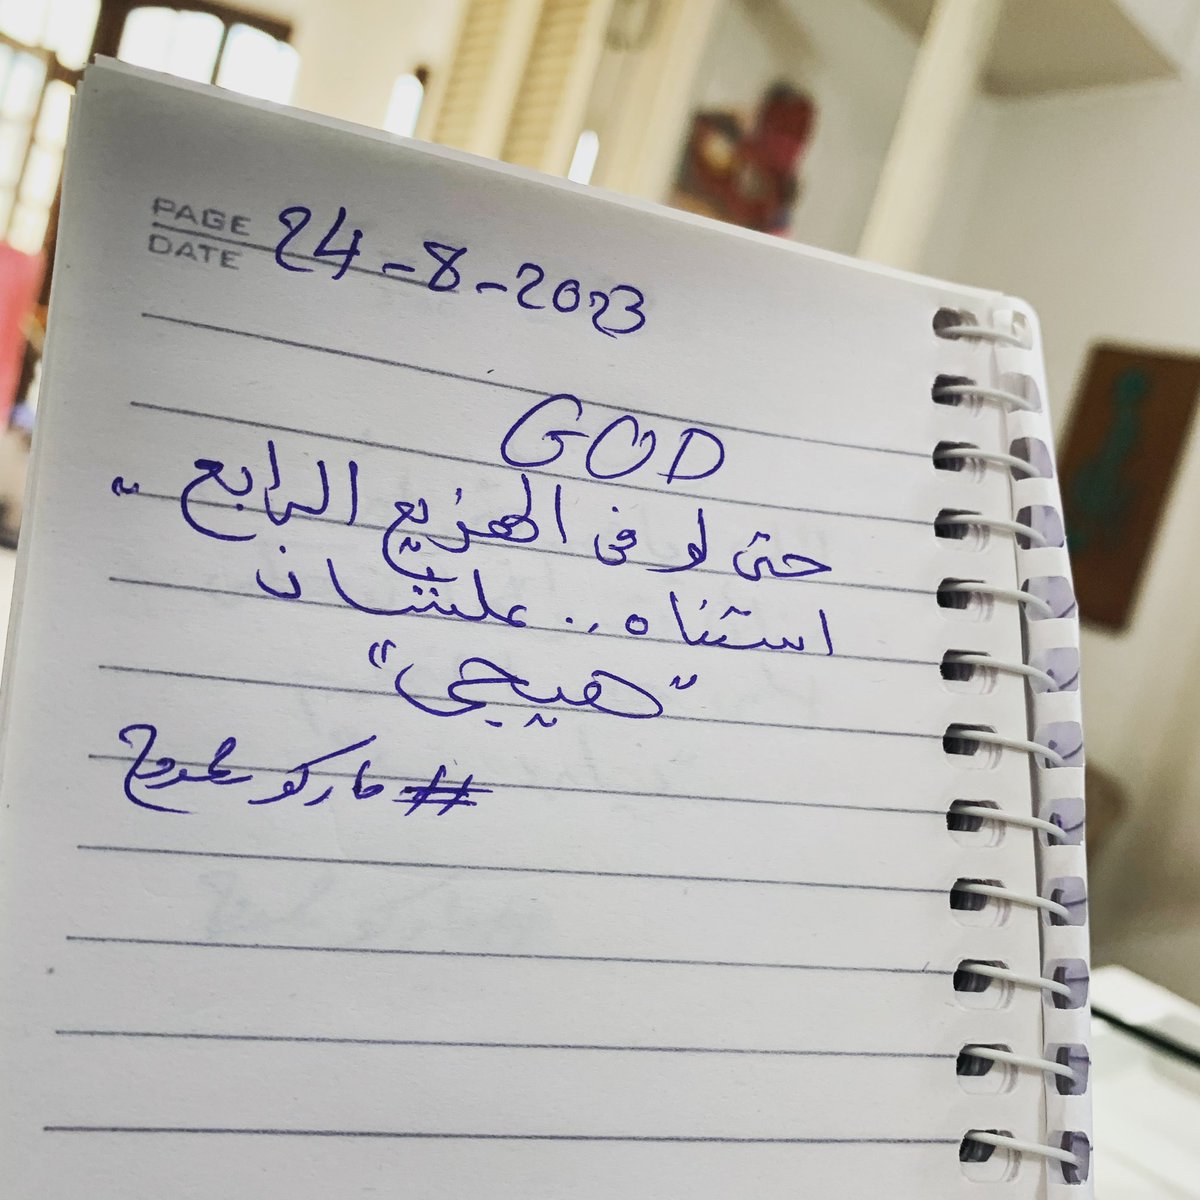 PAGE
DATE
24-8-2023
GOD
حتى لو فى الهزيع الرابع ..
استناه .. علشان
"هيجى"
# ماركو ممدوح